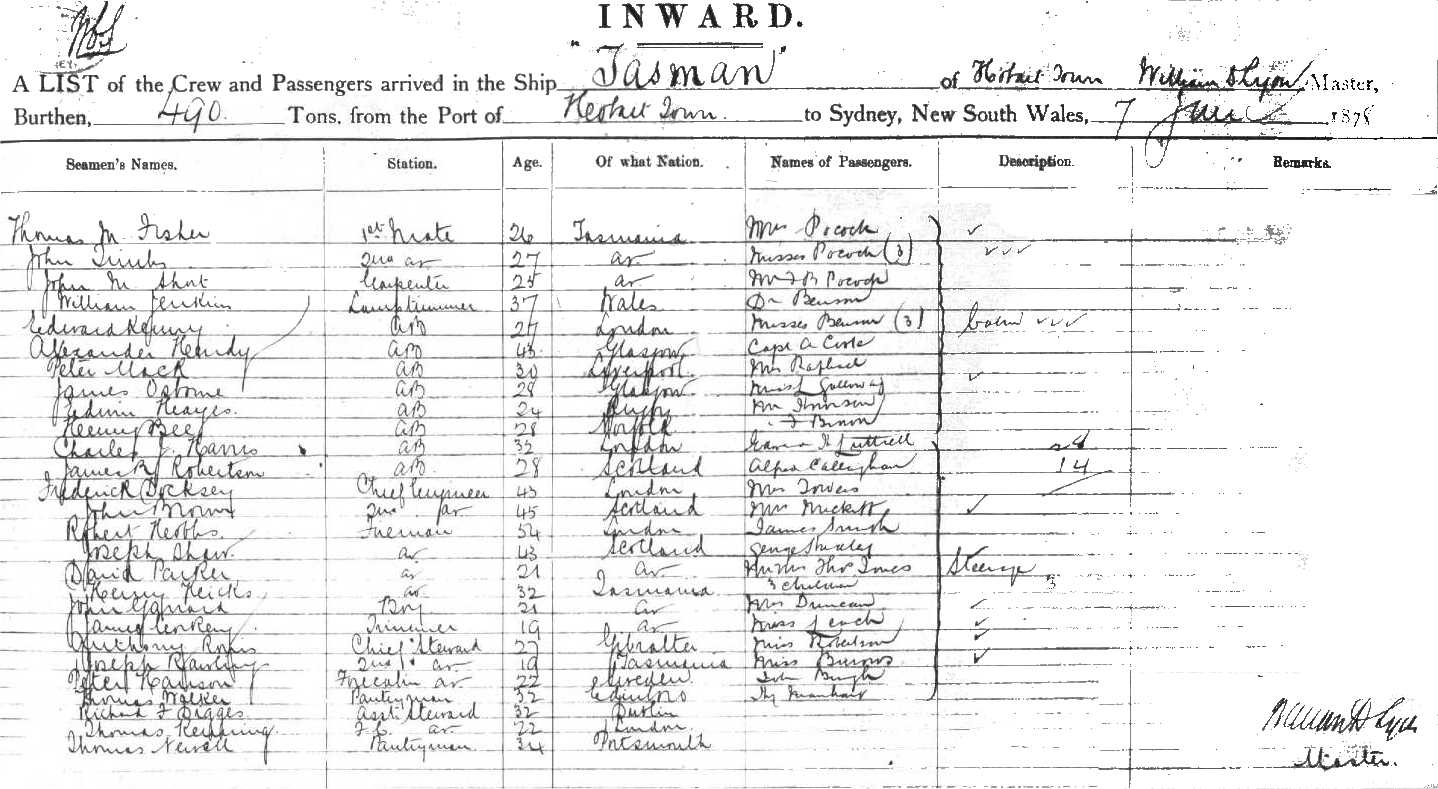 INWARD.
A LIST of the Crew and Passengers arrived in the Ship "Tasman" of Hobart Town William D Lyon, Master,
Burthen, 490 Tons, from the Port of Hobart Town to Sydney, New South Wales, 7 June 1878
Seamen's Names. Station. Age. Of what Nation. Names of Passengers. Description. Remarks.
Thomas M Fisher 1st Mate 26 Tasmania Mrs Pocock
John 2nd do 27 do Misses Pocock (3)
John M Short Carpenter 25 do Mr F B Pocock
William Jenkins Lamptrimmer 37 Wales Dr Benson
Edward Kenny AB 27 London Misses Benson (3) Cabin
Alexander Hendy AB 43 Glasgow Capt A
Peter Mack AB 30 Liverpool Mrs Raphael
James Osborne AB 28 Glasgow Miss Galloway
Edwin Heayes. AB 24 Rugby Mr
Henry Bee AB 28 Norfolk
Charles J. Harris AB 32 London Luttrell
James R Robertson AB 28 Scotland Callaghan 14
Frederick Docksey Chief Engineer 43 London Mrs Towers
John Brown 2nd do 45 Scotland Mrs
Robert Hobbs. Fireman 54 London James Smith
Joseph Shaw. do 43 Scotland George
David Parker do 21 do Thos Jones Steerage
Henry Hicks do 32 Tasmania 3 children 3
John Boy 21 do Mrs Duncan
James Trimmer 19 do Miss Leach
Anthony Chief Steward 27 Gibralter Miss Robertson
Joseph Rawlings 2nd do 19 Tasmania Miss Burrows
Peter Hanson Forecabin do 22 Sweden John
Thomas Walker Pantryman 32 Edinbro
Richard F Digges Asst. Steward 32 Dublin
Thomas F.C. do 22 London
Thomas Newell Pantryman 34 Portsmouth
William D Lyon
Master.